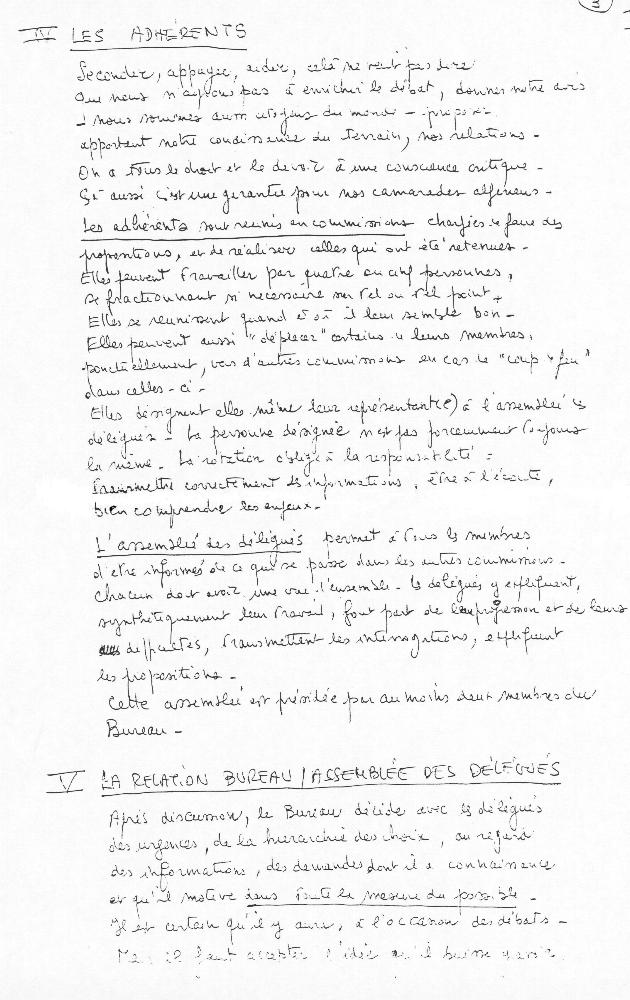 3
IV LES ADHÉRENTS
Seconder, appuyer, aider, celà ne veut pas dire
que nous n'ayons pas à enrichir le débat, donner notre avis
nous sommes aussi citoyens du monde - proposer
apportant notre connaissance du terrain, nos relations -
On a tous le droit et le devoir à une conscience critique -
Çà aussi c'est une garantie pour nos camarades algériens -
Les adhérents sont réunis en commissions chargées de faire des
propositions, et de réaliser celles qui ont été retenues -
Elles peuvent travailler par quatre ou cinq personnes,
se fractionnant si nécessaire sur tel ou tel point -
Elles se réunissent quand et où il leur semble bon -
Elles peuvent aussi "déplacer" certains de leurs membres,
ponctuellement, vers d'autres commissions en cas de "coup de feu"
dans celles-ci -
Elles désignent elles même leur représentant(e) à l'assemblée des
délégués - La personne désignée n'est pas forcément toujours
la même - La rotation oblige à la responsabilité :
transmettre correctement les informations, être à l'écoute,
bien comprendre les enjeux -
L'assemblée des délégués permet à tous les membres
d'être informés de ce qui se passe dans les autres commissions -
Chacun doit avoir une vue d'ensemble - les délégués y expliquent,
synthétiquement leur travail, font part de leur progression et de leurs
difficultés, transmettent les interrogations, expliquent
les propositions -
Cette assemblée est présidée par au moins deux membres du
Bureau -
V LA RELATION BUREAU / ASSEMBLÉE DES DÉLÉGUÉS
Après discussion, le Bureau décide avec les délégués
des urgences, de la hiérarchie des choix, au regard
des informations, des demandes dont il a connaissance
et qu'il motive dans toute la mesure du possible -
Il est certain qu'il y aura, à l'occasion des débats -
Mais il faut accepter l'idée qu'il puisse y avoir